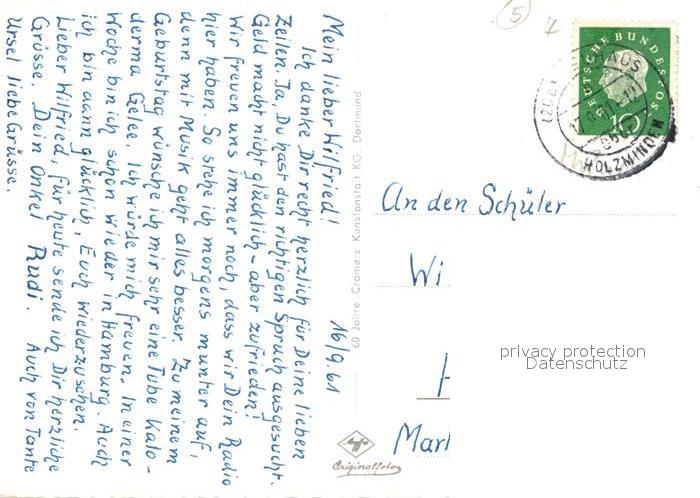 Mein lieber Wilfried! 16/9.61
Ich danke Dir recht herzlich für Deine lieben
Zeilen. Ja, Du hast den richtigen Spruch ausgesucht.
Geld macht nicht glücklich – aber zufrieden!
Wir freuen uns immer noch, dass wir Dein Radio
hier haben. So stehe ich morgens munter auf,
denn mit Musik geht alles besser. Zu meinem
Geburtstag wünsche ich mir sehr eine Tube Kalo-
derma Gelee. Ich würde mich freuen. In einer
Woche bin ich schon wieder in Hamburg. Auch
ich bin dann glücklich, Euch wiederzusehen.
Lieber Wilfried, für heute sende ich Dir herzliche
Grüsse. Dein Onkel Rudi. Auch von Tante
Ursel liebe Grüsse.
60 Jahre Cramers Kunstanstalt KG, Dortmund
Agfa
Originalfoto
5
7
DEUTSCHE BUNDESPOST
10
HOLZMINDEN
An den Schüler
Wi
H
Mar
privacy protection
Datenschutz